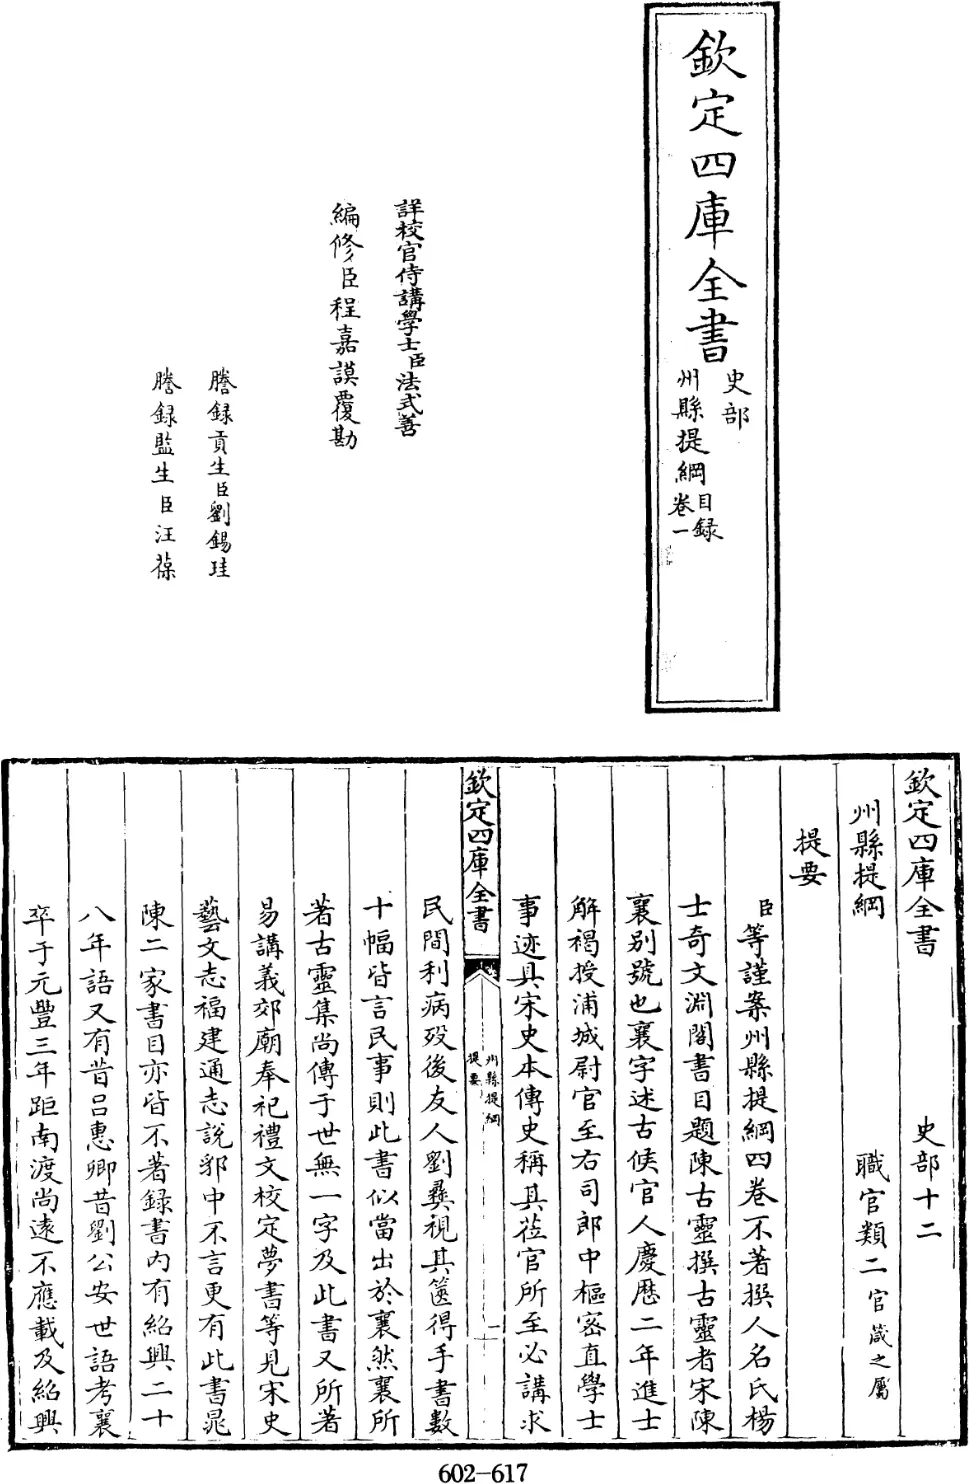 欽定四庫全書
史部
州縣提綱
目録
卷一
詳校官侍講學士臣法式善
編修臣程嘉謨覆勘
謄録貢生臣劉錫珪
謄録監生臣汪葆
欽定四庫全書 史部十二
州縣提綱 職官類二官箴之屬
提要
臣等謹案州縣提綱四卷不著撰人名氏楊
士奇文淵閣書目題陳古靈撰古靈者宋陳
襄别號也襄字述古侯官人慶歴二年進士
解褐授浦城尉官至右司郎中樞密直學士
事迹具宋史本傳史稱其莅官所至必講求
欽定四庫全書
州縣提綱
提要
一
民間利病殁後友人劉彞視其篋得手書數
十幅皆言民事則此書似當出於襄然襄所
著古靈集尚傳于世無一字及此書又所著
易講義郊廟奉祀禮文校定夢書等見宋史
藝文志福建通志說郛中不言更有此書晁
陳二家書目亦皆不著録書内有紹興二十
八年語又有昔吕惠卿昔劉公安世語考襄
卒于元豐三年距南渡尚逺不應載及紹興
602-617